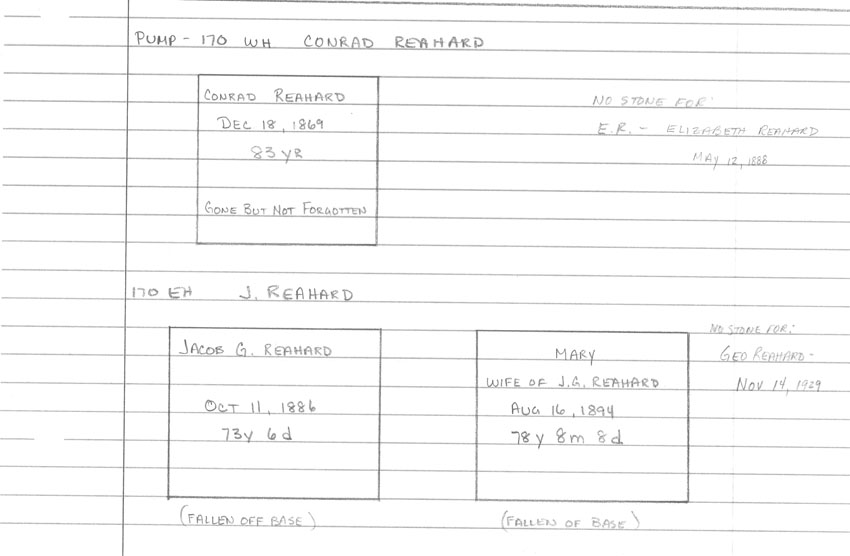 PUMP - 170 WH CONRAD REAHARD
CONRAD REAHARD
DEC 18, 1869
83 YR
GONE BUT NOT FORGOTTEN
NO STONE FOR:
E.R. - ELIZABETH REAHARD
MAY 12, 1888
170 EH J. REAHARD
JACOB G. REAHARD
OCT 11, 1886
73y 6d
(FALLEN OFF BASE)
MARY
WIFE OF J.G. REAHARD
AUG 16, 1894
78 y 8m 8d
(FALLEN OF BASE)
NO STONE FOR:
GEO REAHARD -
NOV 14, 1929